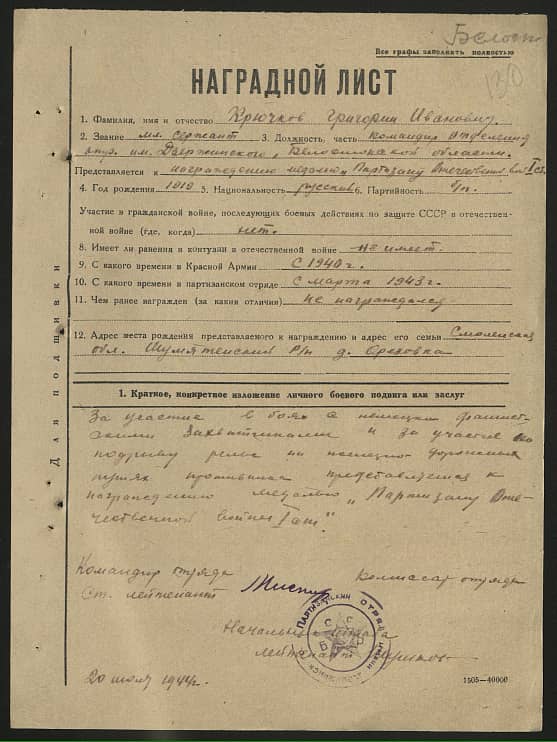 Белост
Все графы заполнять полностью
130
НАГРАДНОЙ ЛИСТ
1. Фамилия, имя и отчество Крючков Григорий Иванович
2. Звание мл. сержант 3. Должность, часть командир отделения
им. Дзержинского, Белостокской области.
Представляется к награждению медалью „Партизану Отечествен. войны I ст.
4. Год рождения 1919 5. Национальность русский 6. Партийность б/п.
Участие в гражданской войне, последующих боевых действиях по защите СССР в отечествен-
ной войне (где, когда) нет.
8. Имеет ли ранения и контузии в отечественной войне не имеет.
9. С какого времени в Красной Армии с 1940 г.
10. С какого времени в партизанском отряде с марта 1943 г.
11. Чем ранее награжден (за какие отличия) не награждался
12. Адрес места рождения представляемого к награждению и адрес его семьи Смоленская
обл. Шумятенский р/н д. Ореховка
Для подшивки
1. Краткое, конкретное изложение личного боевого подвига или заслуг
За участие в боях с немецкими фашист-
скими захватчиками и за участие по
подрыву рельс на железно-дорожных
путях противника представляется к
награждению медалью „Партизану Оте-
чественной войны I ст."
Командир отряда Комиссар отряда
Ст. лейтенант
Начальник штаба
лейтенант
20 июля 1944 г.
1505—40000